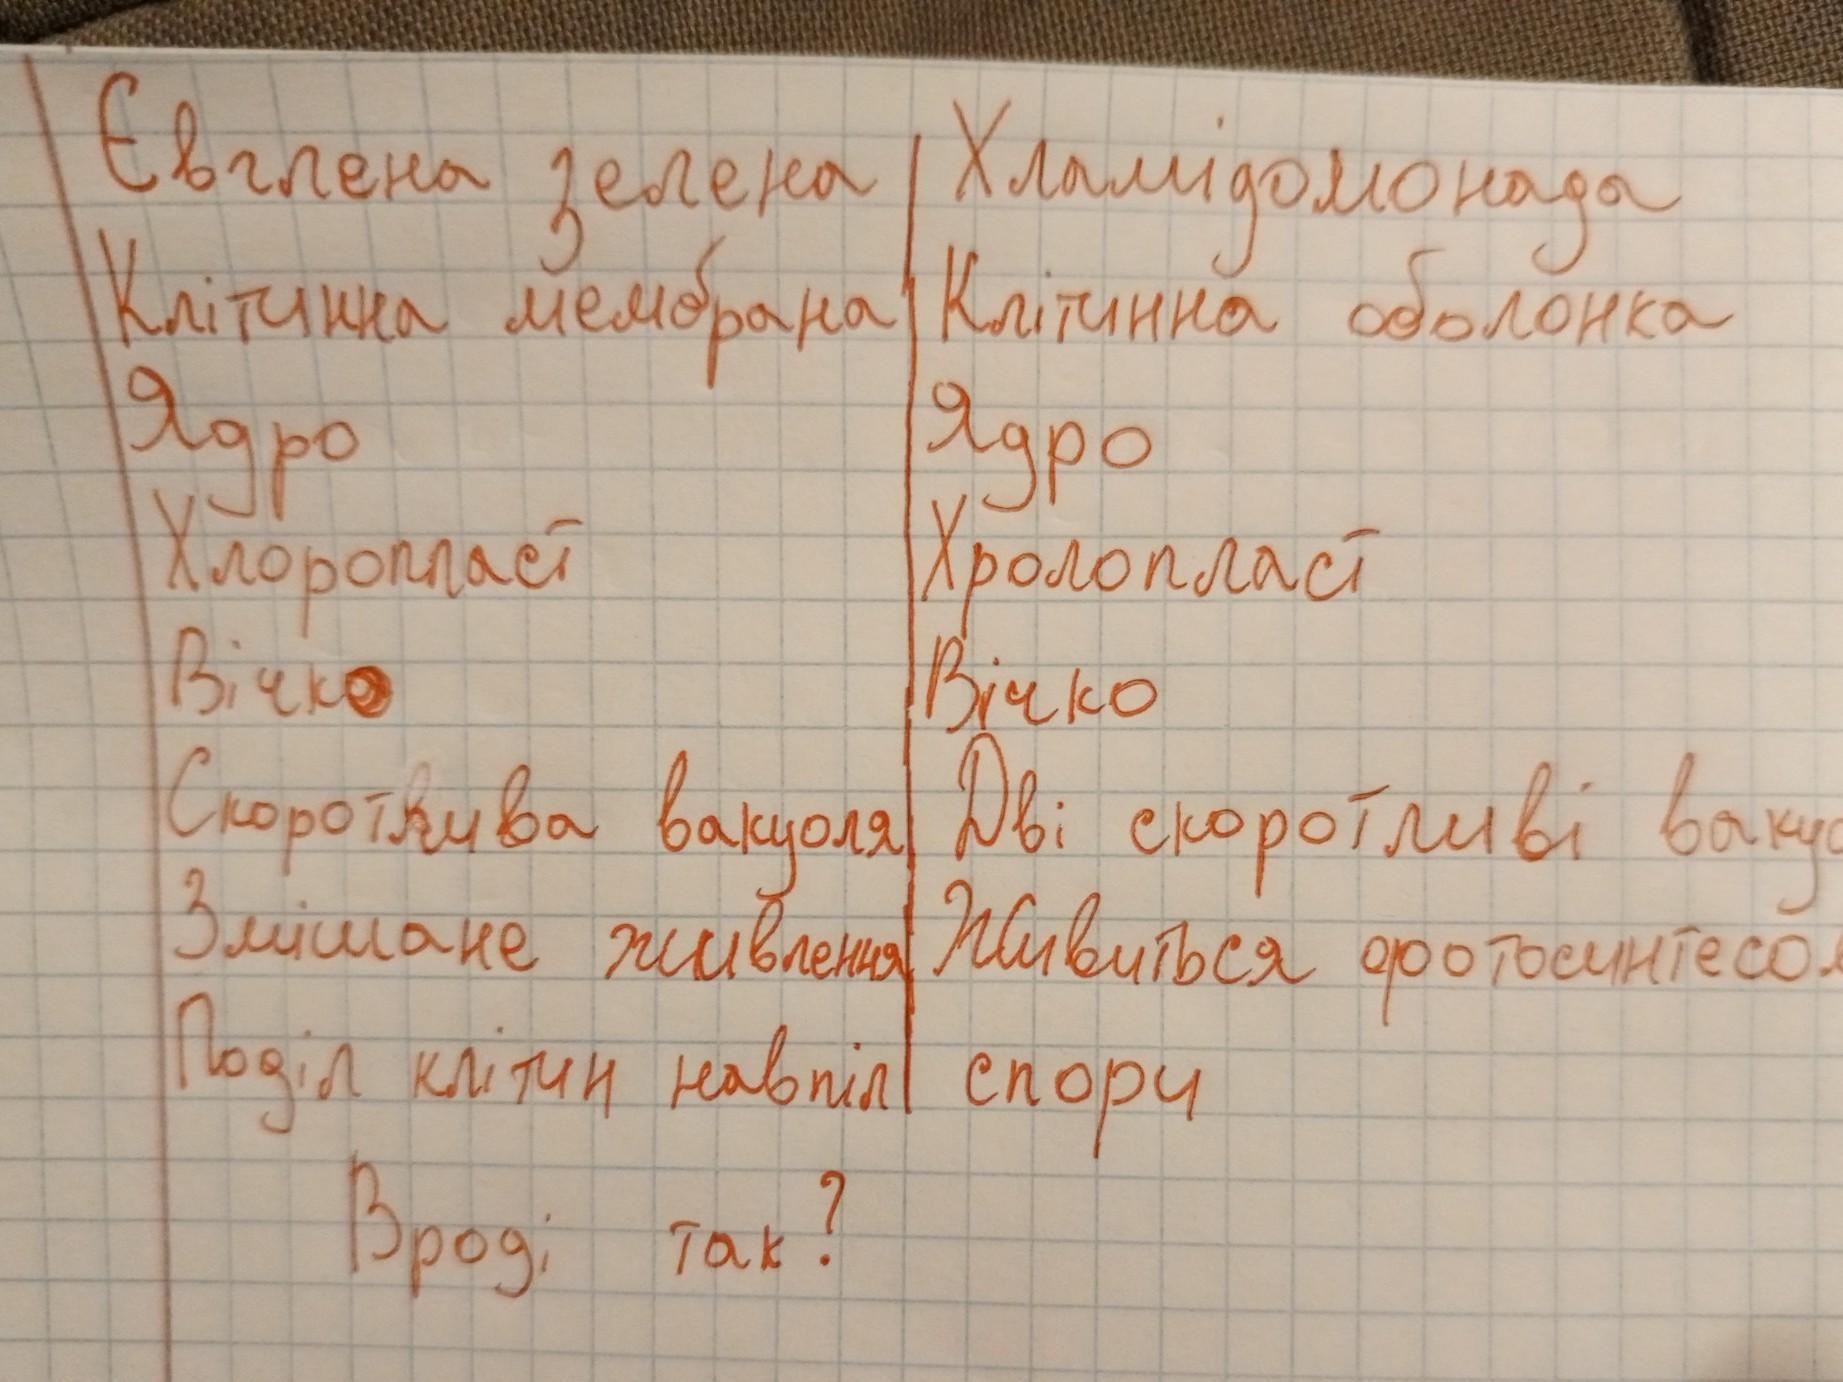 Євглена зелена | Хламідомонада
Клітинна мембрана | Клітинна оболонка
Ядро | Ядро
Хлоропласт | Хролопласт
Вічко | Вічко
Скоротлива вакуоля | Дві скоротливі
Змішане живлення | Живиться фотосинтесом
Поділ клітин навпіл | спори
Вроді так?